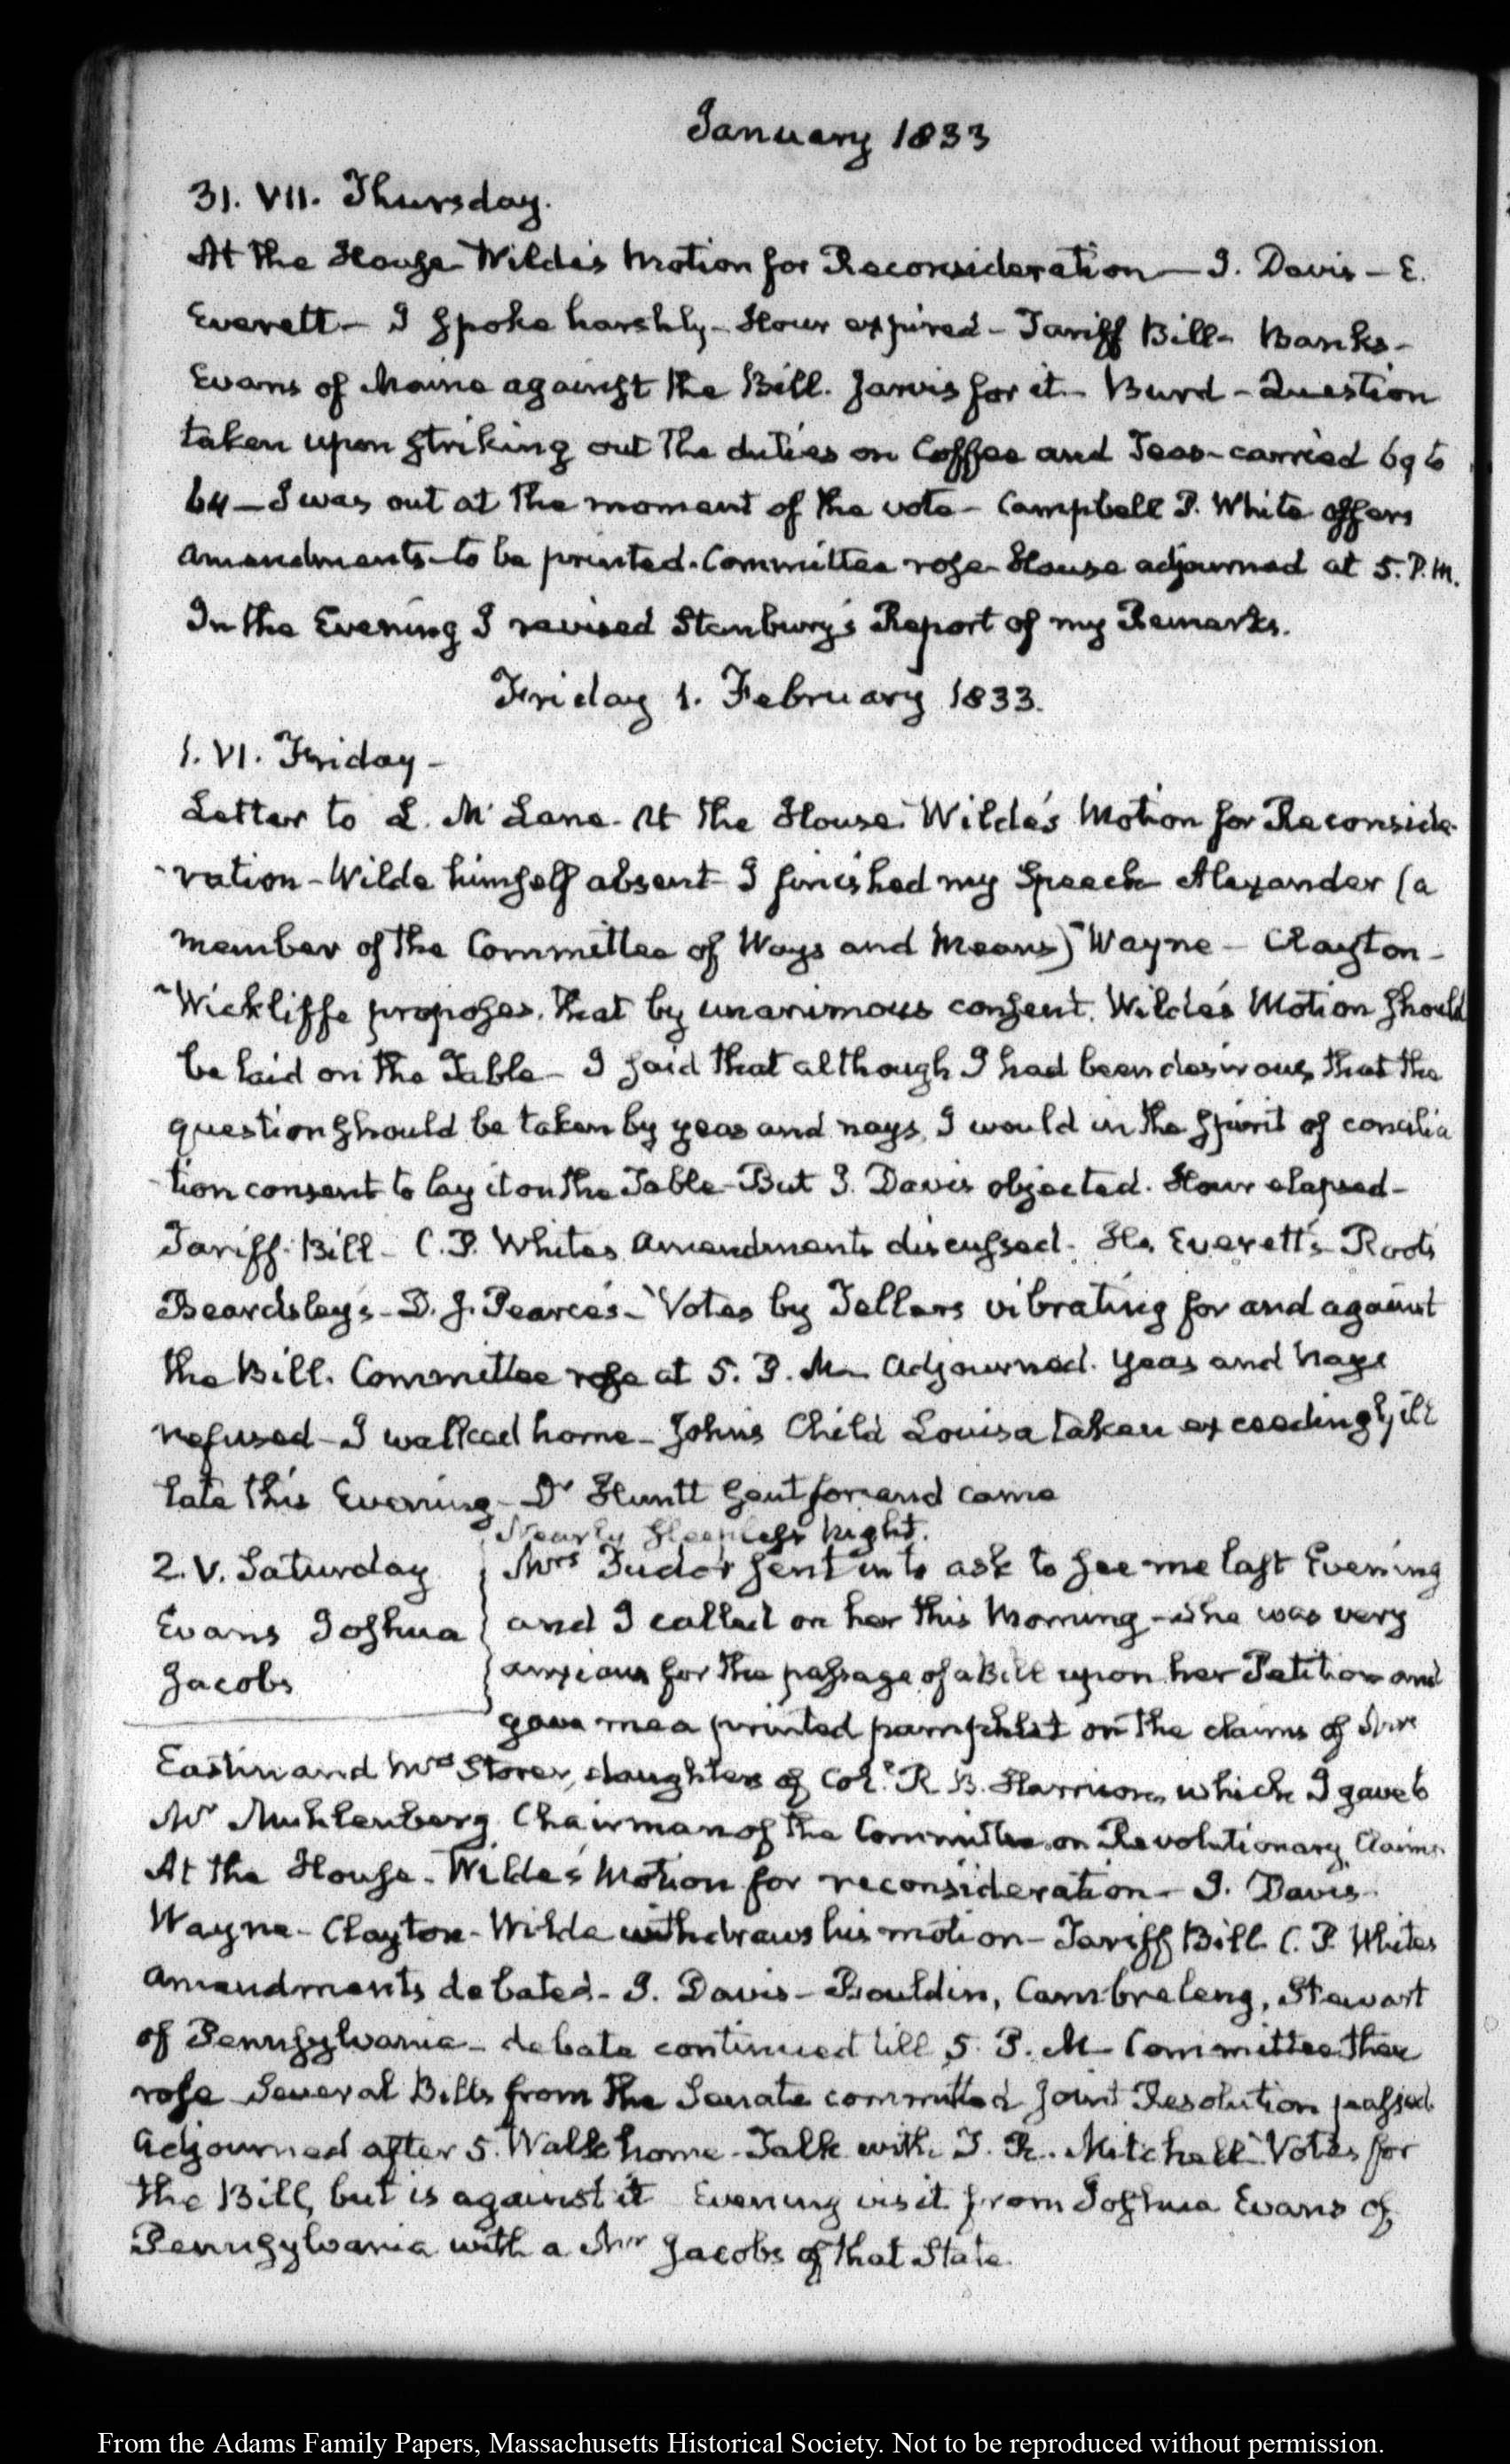 January 1833
31. VII. Thursday.
At the House Wilde's Motion for Reconsideration — J. Davis — E.
Everett — I spoke harshly — Hour expired — Tariff Bill — Banks —
Evans of Maine against the Bill. Jarvis for it — Burd — Question
taken upon striking out the duties on Coffee and Teas — carried 69 to
64 — I was out at the moment of the vote — Campbell P. White offers
amendments to be printed. Committee rose House adjourned at 5. P.M.
In the Evening I revised Stanbury's Report of my Remarks.
Friday 1. February 1833.
1. VI. Friday —
Letter to L. McLane. At the House. Wilde's Motion for Reconside-
-ration — Wilde himself absent — I finished my Speech — Alexander (a
member of the Committee of Ways and Means) Wayne — Clayton —
Wickliffe proposes, that by unanimous consent, Wilde's Motion should
be laid on the Table — I said that although I had been desirous, that the
question should be taken by yeas and nays, I would in the spirit of concilia
-tion consent to lay it on the Table — But J. Davis objected. Hour elapsed —
Tariff Bill — C. P. White's amendments discussed. Hs. Everett's — Root's
Beardsley's — D. J. Pearce's — Votes by Tellers vibrating for and against
the Bill. Committee rose at 5. P. M — adjourned. Yeas and Nays
refused — I walked home — John's Child Louisa taken exceedingly ill
late this Evening — Dr Huntt sent for and came
Nearly sleepless Night.
2. V. Saturday
Evans Joshua
Jacobs
Mrs Tudor sent in to ask to see me last Evening
and I called on her this Morning — She was very
anxious for the passage of a Bill upon her Petition and
gave me a printed pamphlet on the claims of Mrs
Eastin and Mrs Storer, daughters of Coll. R. B. Harrison, which I gave to
Mr Muhlenberg Chairman of the Committee on Revolutionary Claims.
At the House. Wilde's Motion for reconsideration — J. Davis.
Wayne — Clayton — Wilde withdraws his motion — Tariff Bill. C. P. White's
amendments debated — J. Davis — Bouldin, Cambreleng, Stewart
of Pennsylvania — debate continued till 5. P. M — Committee then
rose Several Bills from the Senate committed Joint Resolution passed.
Adjourned after 5. Walk home — Talk with T. R. Mitchell Votes for
the Bill, but is against it Evening visit from Joshua Evans of
Pennsylvania with a Mr Jacobs of that State.
From the Adams Family Papers, Massachusetts Historical Society. Not to be reproduced without permission.